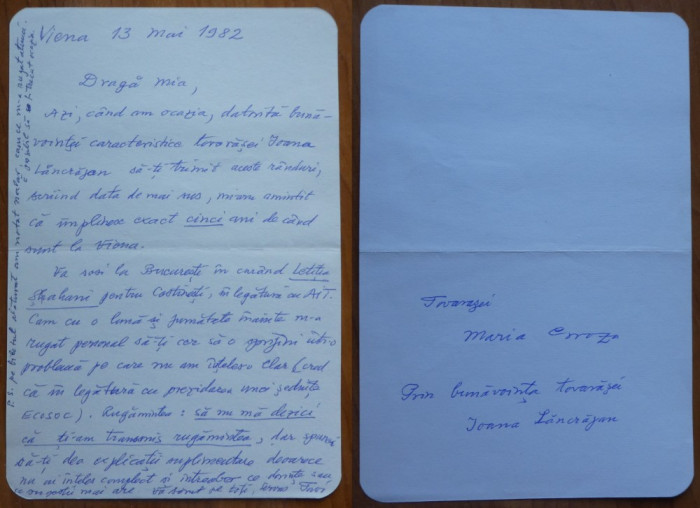 Viena 13 mai 1982
Dragă Mia,
Azi, când am ocazia, datorită bună-
voinței caracteristice tovarășei Ioana
Lăncrăjan să-ți trimit aceste rânduri,
scriind data de mai sus, mi-am amintit
că împlinesc exact cinci ani de când
sunt la Viena.
Va sosi la București în curând Letiția
Shahani pentru Costinești, în legătură cu
Cam cu o lună și jumătate înainte m-a
rugat personal să-ți cer să o sprijini într-o
problemă pe care nu am înțeles-o clar (cred
că în legătură cu prezidarea unei ședințe
ECOSOC). Rugămintea: să nu mă dezici
că ți-am transmis rugămintea, dar
să-ți dea explicații suplimentare deoarece
nu ai înțeles complect și întreabă ce dorește
mai are. Vă sărut pe toți,
P.S. pe biletul alăturat am notat
Tovarășei
Maria Groza
Prin bunăvoința tovarășei
Ioana Lăncrăjan